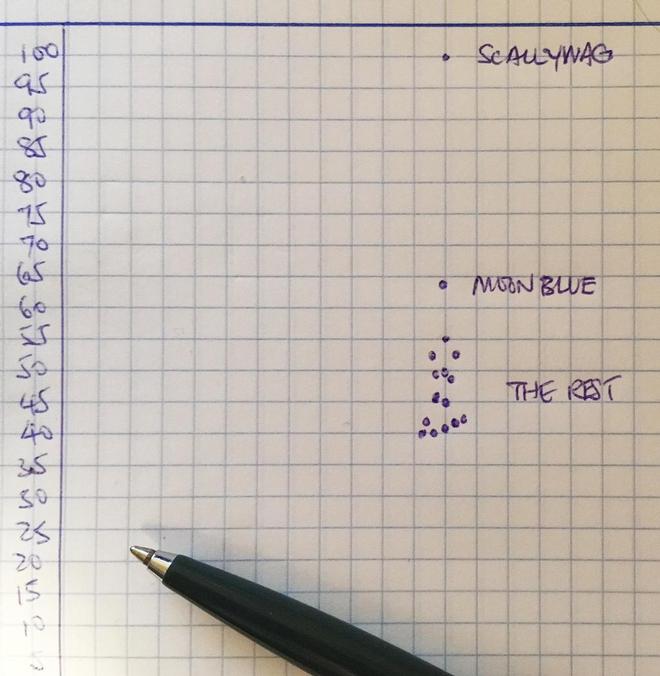 100 SCALLYWAG
95
90
85
80
75
70
65 MOON BLUE
60
55
50
45 THE REST
40
35
30
25
20
15
10
5